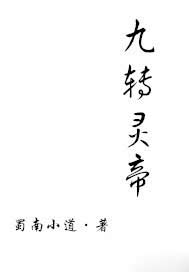 九转灵帝
蜀南小道·著